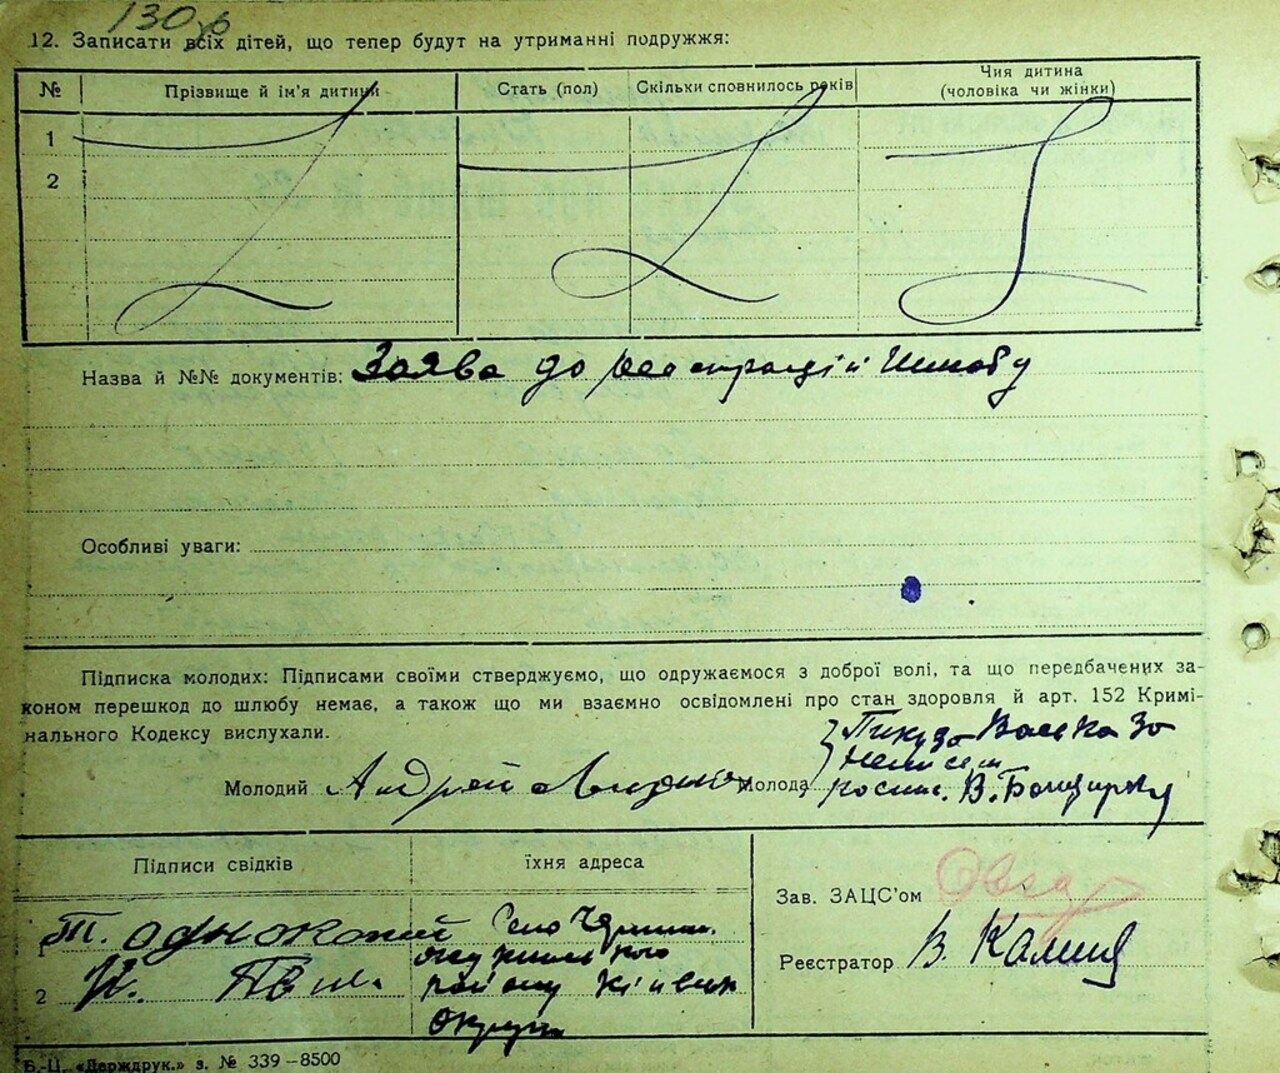 130
12. Записати всіх дітей, що тепер будут на утриманні подружжя:
№ Прізвище й ім'я дитини Стать (пол) Скільки сповнилось років Чия дитина (чоловіка чи жінки)
1
2
Назва й №№ документів: Заява до реєстрації шлюбу
Особливі уваги:
Підписка молодих: Підписами своїми стверджуємо, що одружаємося з доброї волі, та що передбачених за-
коном перешкод до шлюбу немає, а також що ми взаємно освідомлені про стан здоровля й арт. 152 Кримі-
нального Кодексу вислухали.
Молодий Андрей Молода
В.
Підписи свідків їхня адреса
Зав. ЗАЦС'ом
1 Т. Одноконий Село
Реєстратор В.
району
2
Округи
Б.-Ц. „Держдрук.“ з. № 339–8500